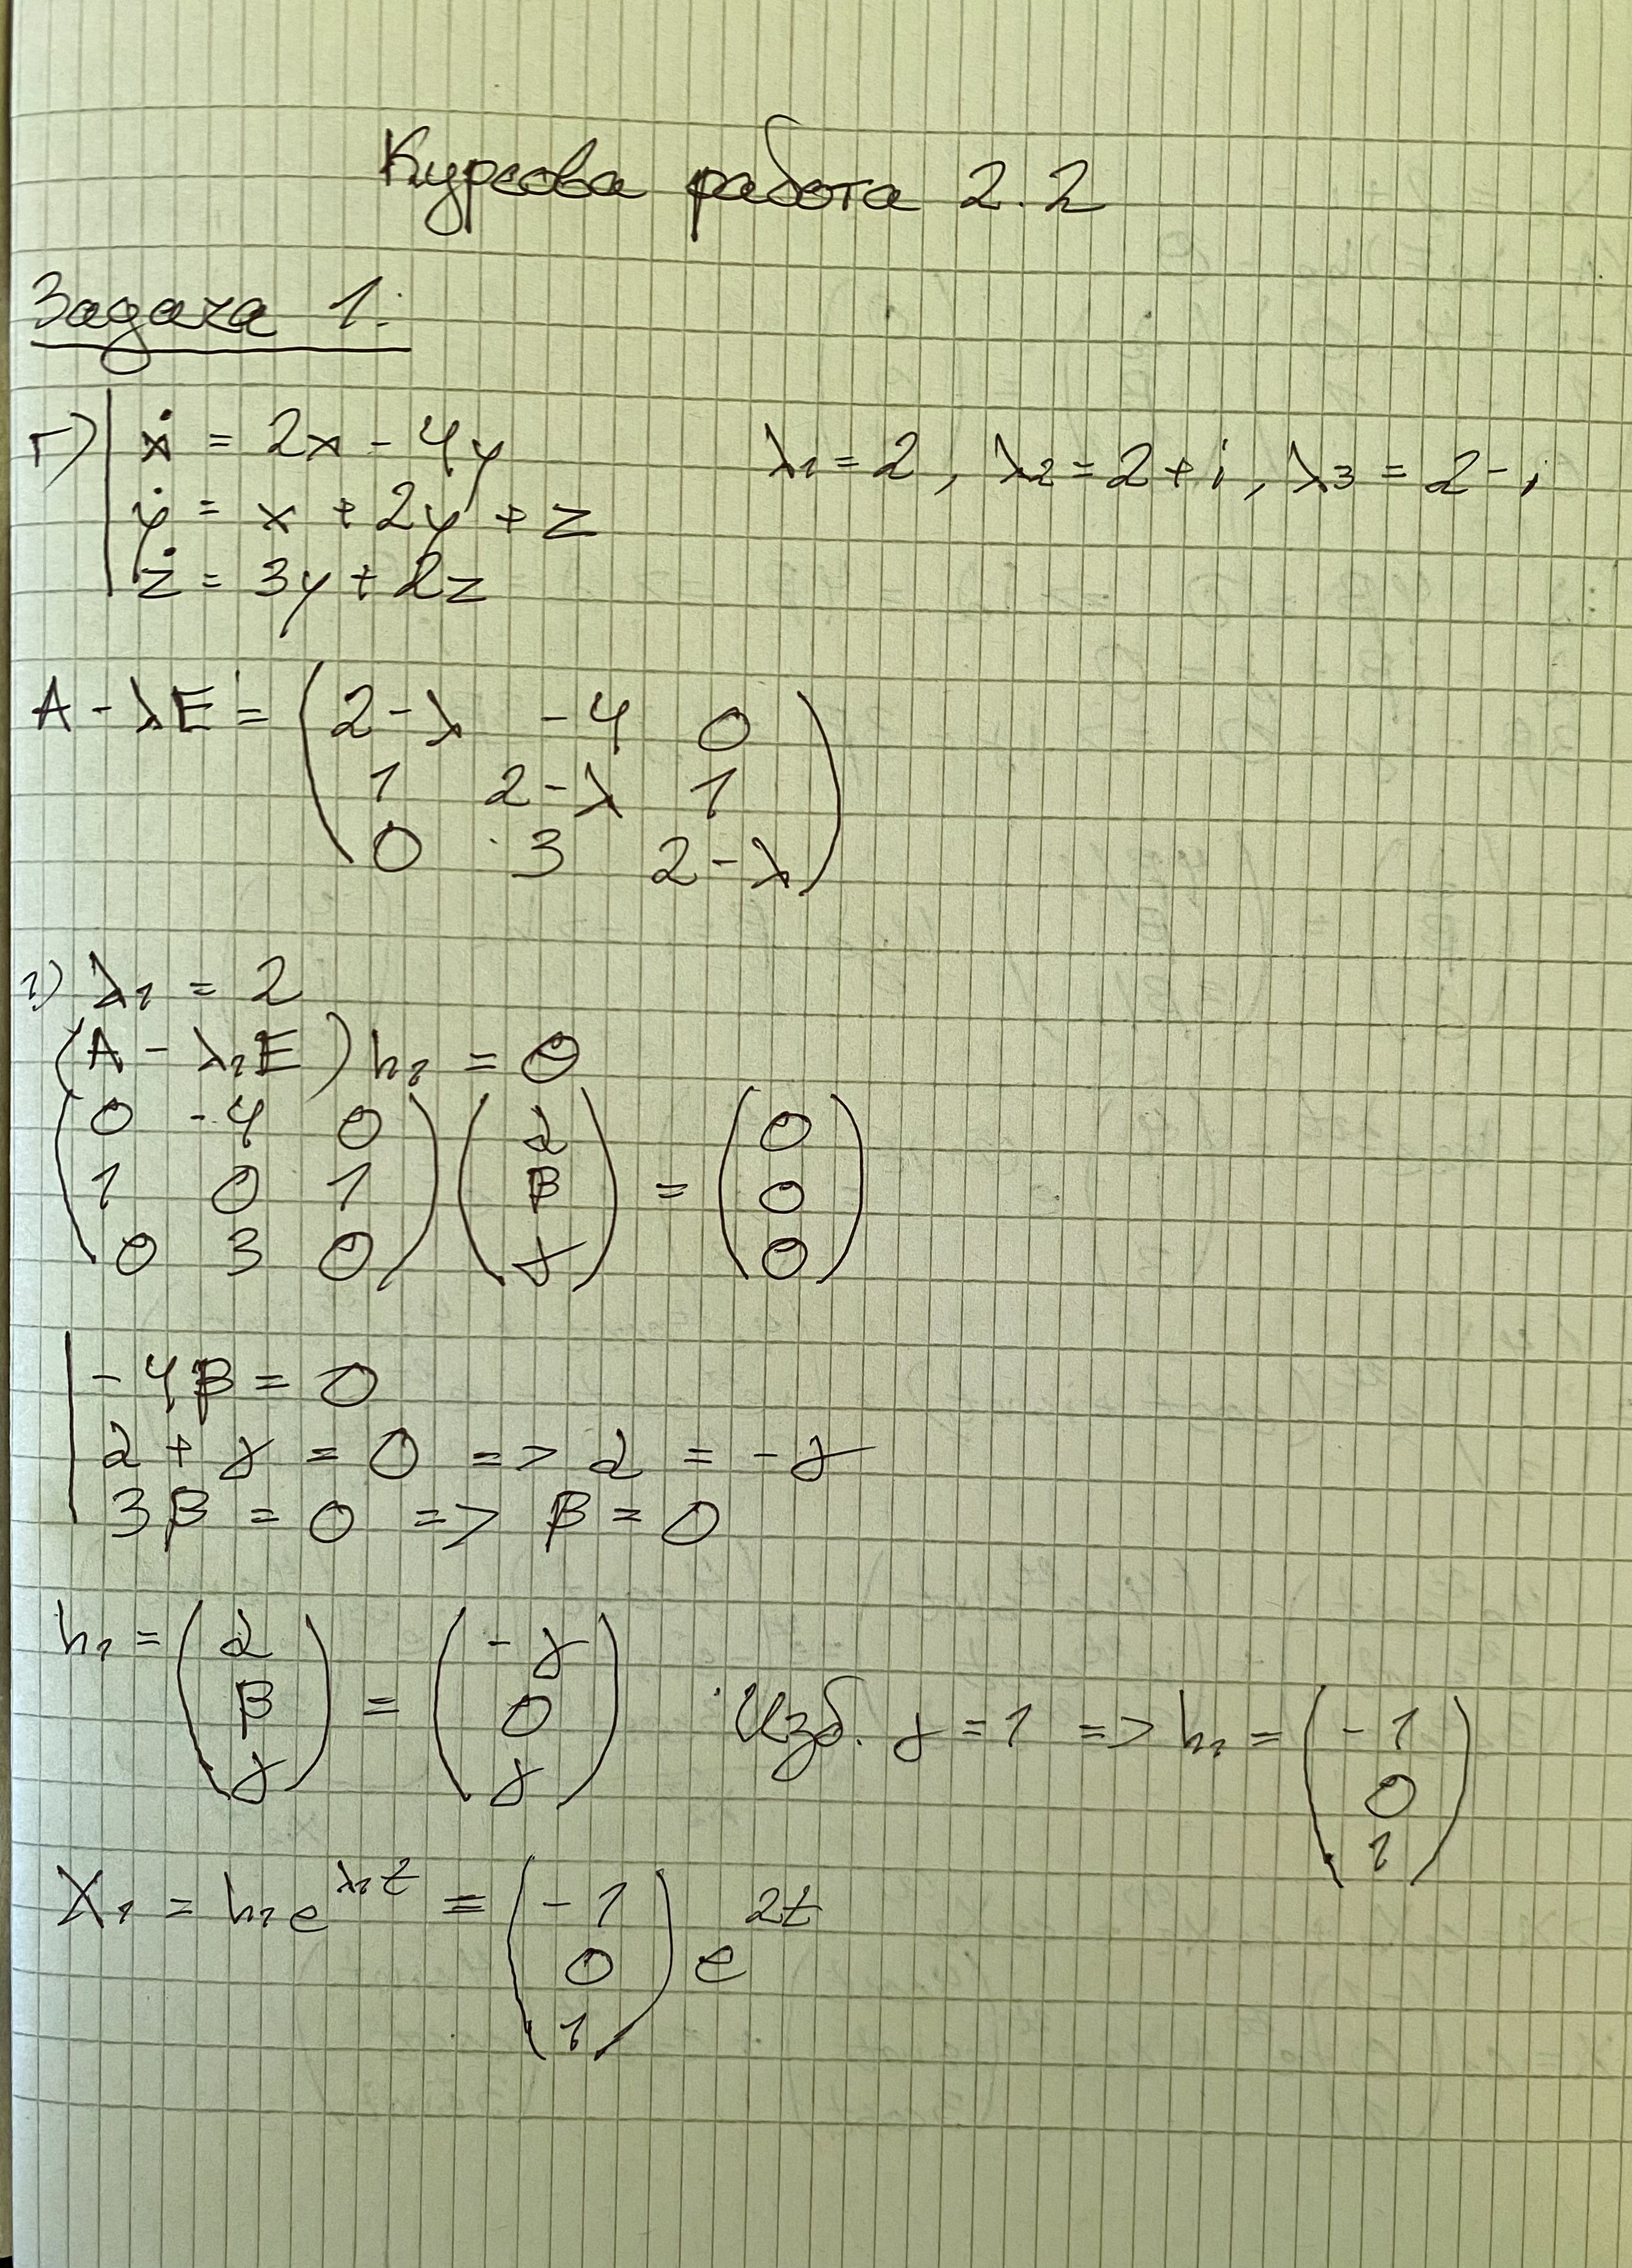 Курсова работа 2.2
Задача 1:
г) ẋ = 2x - 4y λ1 = 2, λ2 = 2+i, λ3 = 2-i
ẏ = x + 2y + z
ż = 3y + 2z
A - λE = ( 2-λ -4 0
1 2-λ 1
0 3 2-λ )
1) λ1 = 2
(A - λ1E) h1 = 0
( 0 -4 0 ) ( α ) = ( 0 )
( 1 0 1 ) ( β ) = ( 0 )
( 0 3 0 ) ( γ ) = ( 0 )
-4β = 0
α + γ = 0 => α = -γ
3β = 0 => β = 0
h1 = ( α β γ ) = ( -γ 0 γ ) Изб. γ = 1 => h1 = ( -1 0 1 )
X1 = h1 e^λ1t = ( -1 0 1 ) e^2t